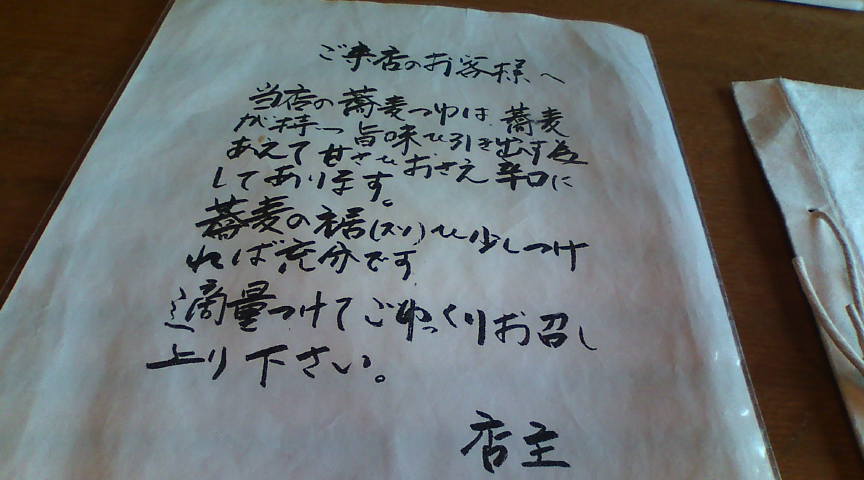 ご来店のお客様へ
当店の蕎麦つゆは蕎麦
が持つ旨味を引き出す為
あえて甘さをおさえ辛口に
してあります。
蕎麦の裾(スソ)を少しつけ
れば充分です
適量つけてごゆっくりお召し
上り下さい。
店主